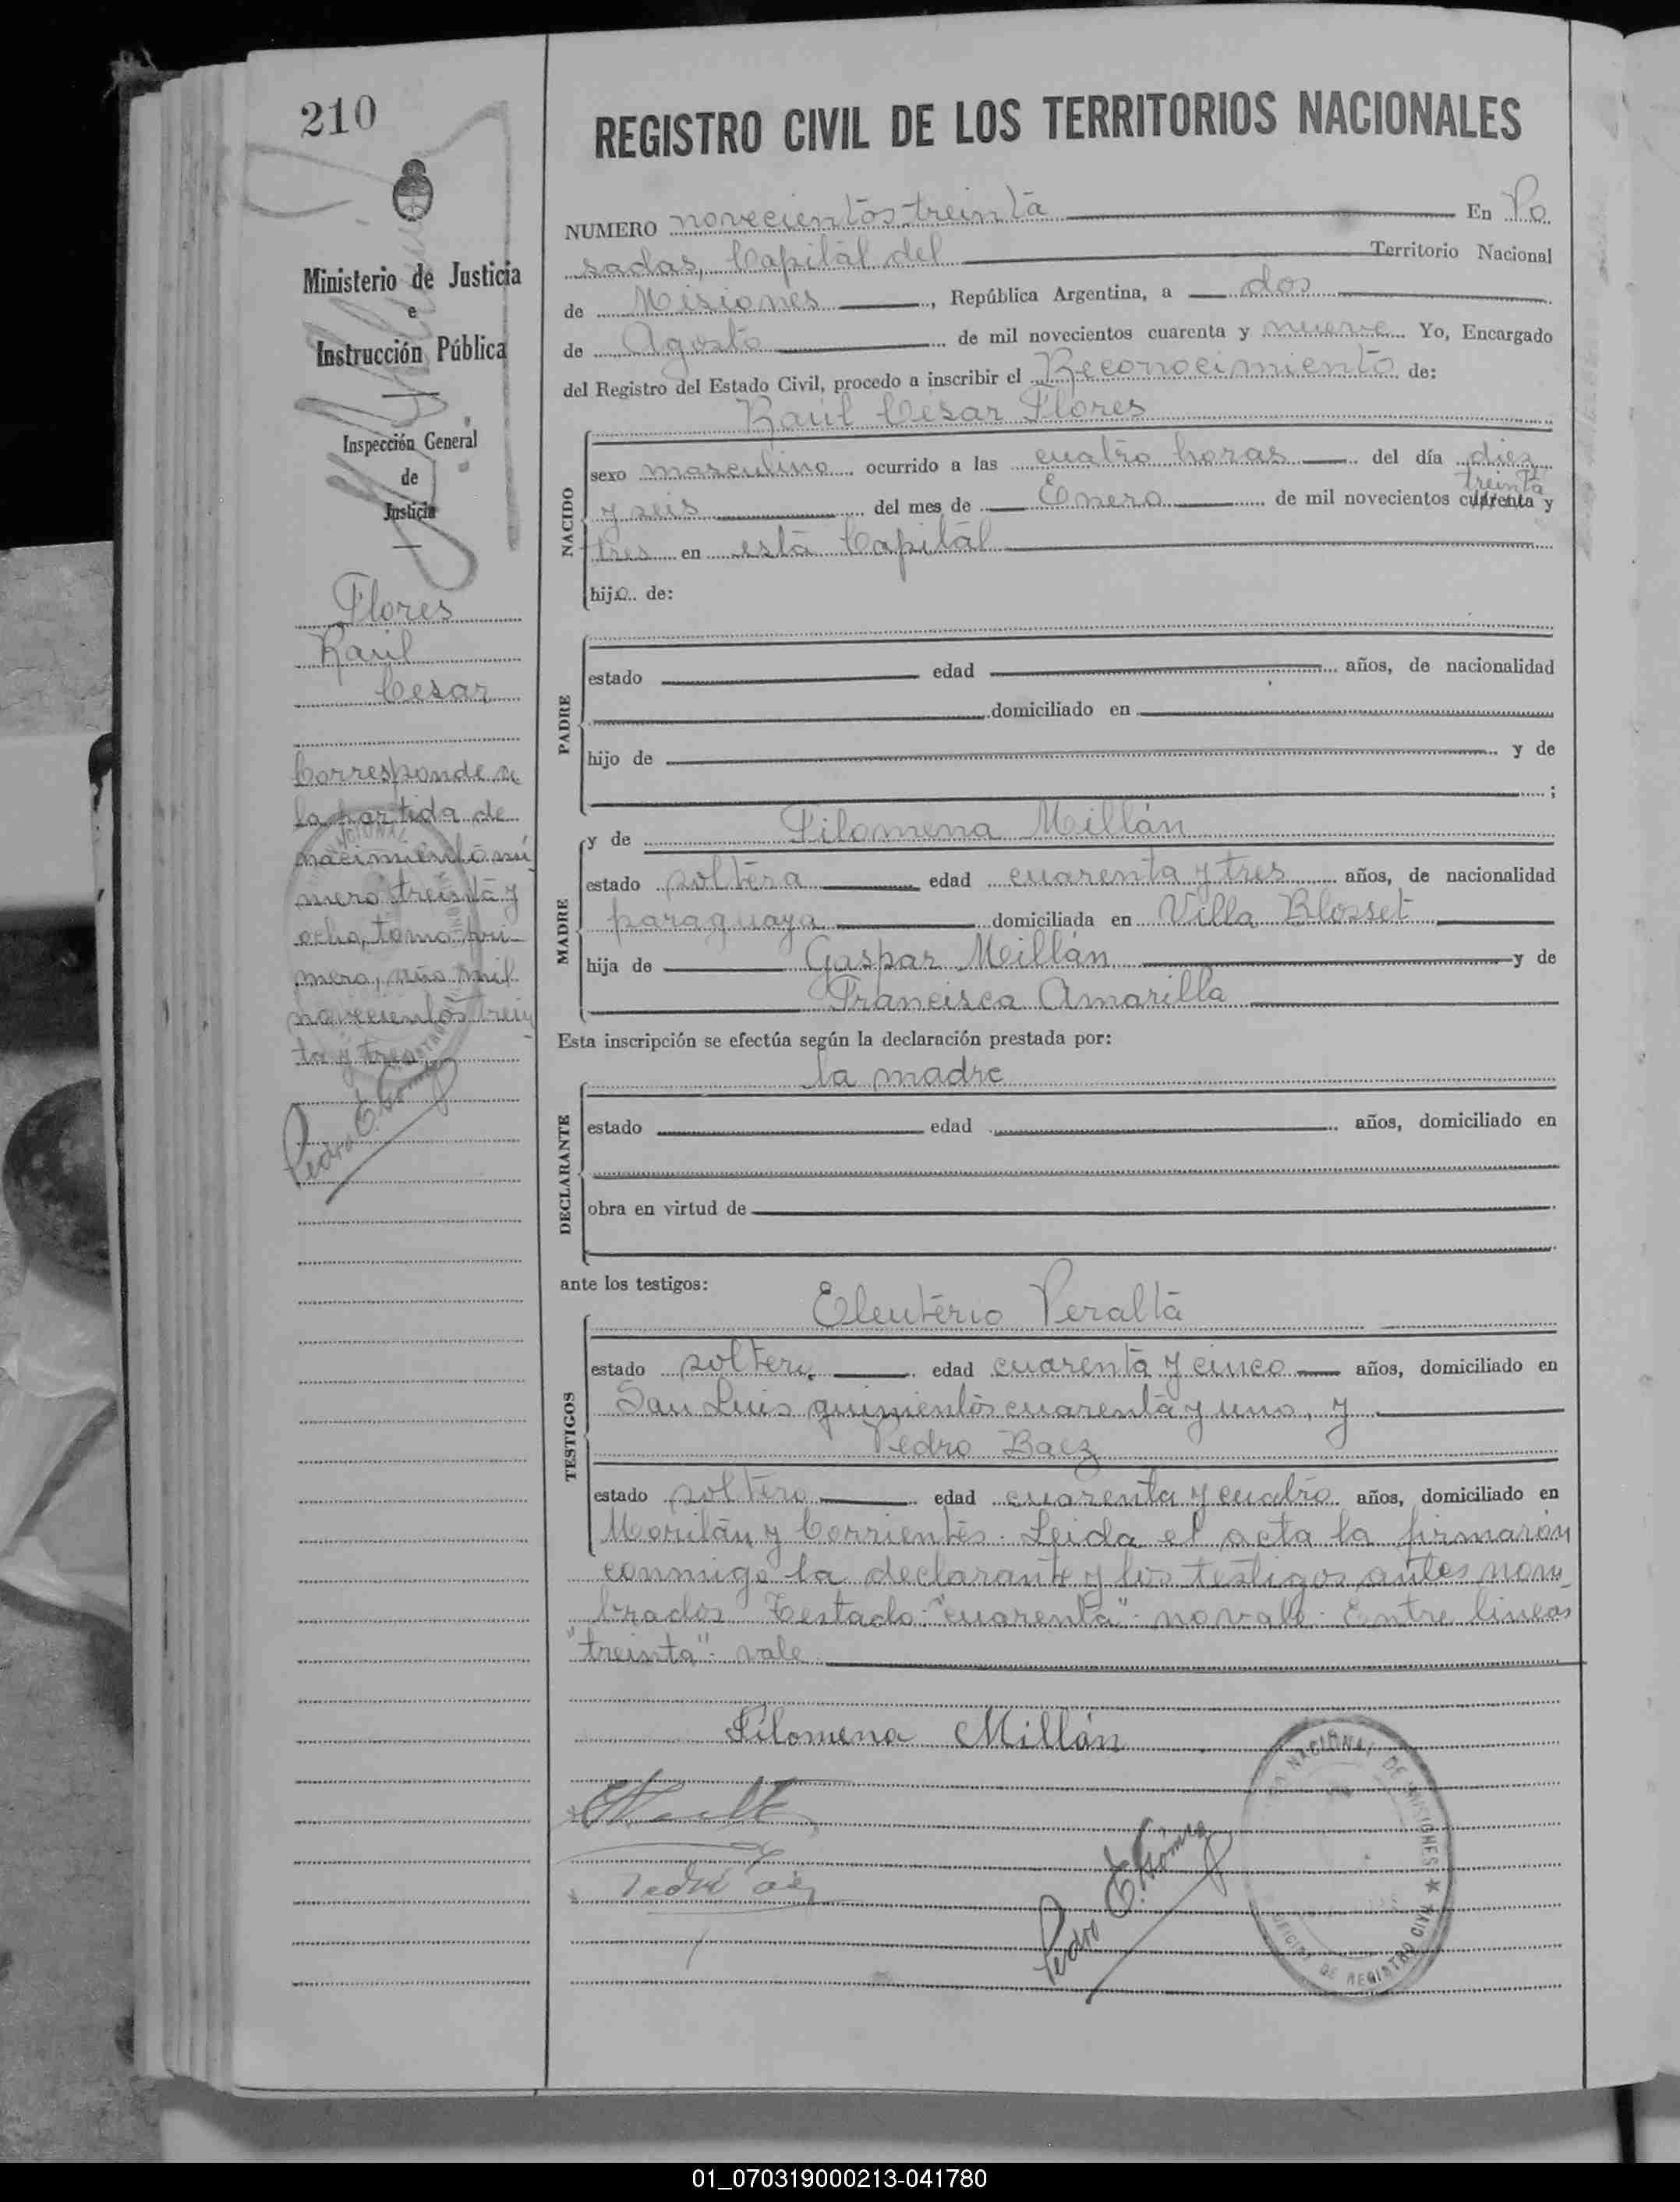 210
Ministerio de Justicia
e
Instrucción Pública
Inspección General
de
Justicia
Flores
Raúl
Cesar
Corresponde a
la partida de
nacimiento nú
mero treinta y
ocho, tomo pri-
mero, año mil
novecientos trein
ta y tres
Pedro E. Gómez
REGISTRO CIVIL DE LOS TERRITORIOS NACIONALES
NUMERO novecientos treinta En Po
sadas, Capital del Territorio Nacional
de Misiones, República Argentina, a dos
de Agosto de mil novecientos cuarenta y nueve Yo, Encargado
del Registro del Estado Civil, procedo a inscribir el Reconocimiento de:
Raúl César Flores
NACIDO
sexo masculino ocurrido a las cuatro horas del día diez
treinta
y seis del mes de Enero de mil novecientos cuarenta y
tres en esta Capital
hijo de:
PADRE
estado edad años, de nacionalidad
domiciliado en
hijo de y de
;
MADRE
y de Filomena Millán
estado soltera edad cuarenta y tres años, de nacionalidad
paraguaya domiciliada en Villa Blosset
hija de Gaspar Millán y de
Francisca Amarilla
Esta inscripción se efectúa según la declaración prestada por:
la madre
DECLARANTE
estado edad años, domiciliado en
obra en virtud de
ante los testigos:
Eleuterio Peralta
TESTIGOS
estado soltero edad cuarenta y cinco años, domiciliado en
San Luis quinientos cuarenta y uno, y
Pedro Baez
estado soltero edad cuarenta y cuatro años, domiciliado en
y Corrientes. Leida el acta la firmarón
conmigo la declarante y los testigos antes nom
brados Testado: "cuarenta": no vale: Entre lineas
"treinta": vale
Filomena Millán
Pedro E. Gómez
NACIONAL DE MISIONES ★ OFICINA DE REGISTRO CIVIL
01_070319000213-041780